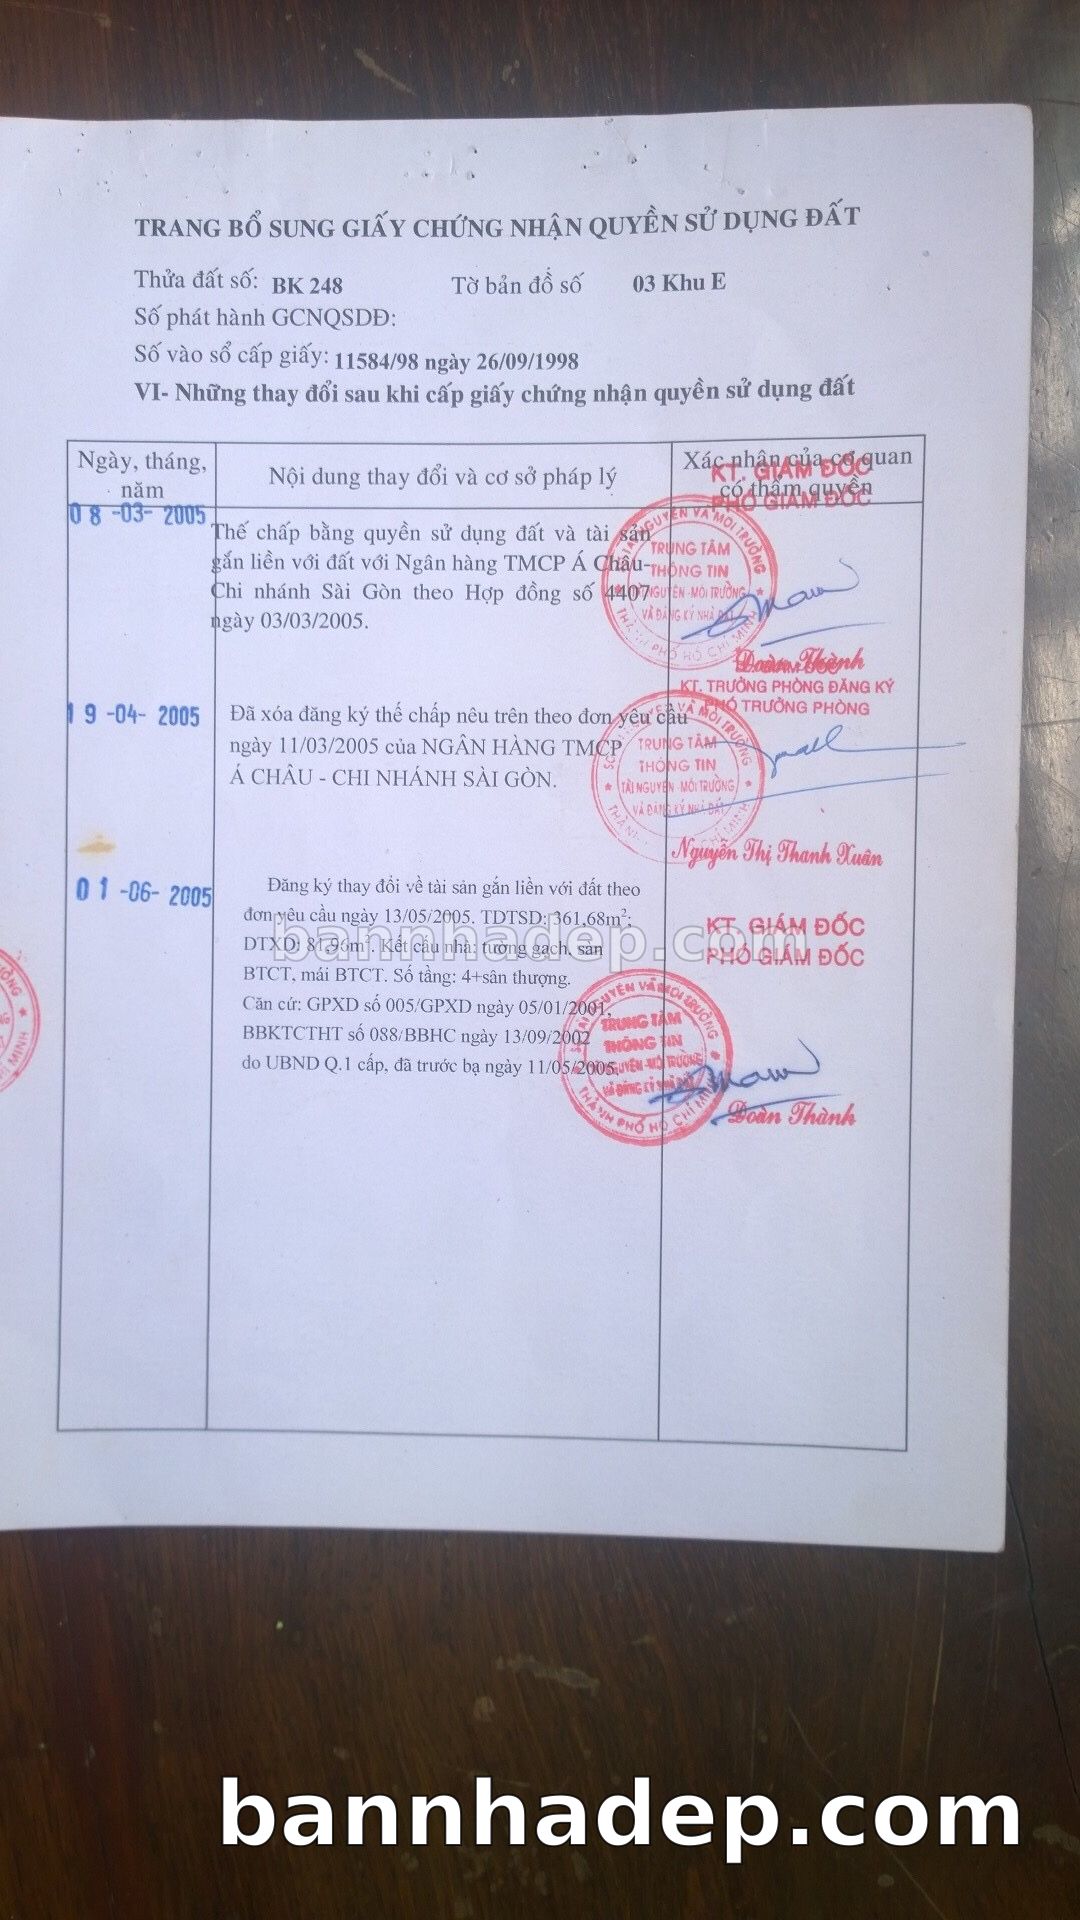 TRANG BỔ SUNG GIẤY CHỨNG NHẬN QUYỀN SỬ DỤNG ĐẤT
Thửa đất số: BK 248 Tờ bản đồ số 03 Khu E
Số phát hành GCNQSDĐ:
Số vào sổ cấp giấy: 11584/98 ngày 26/09/1998
VI- Những thay đổi sau khi cấp giấy chứng nhận quyền sử dụng đất
Ngày, tháng,
năm
Nội dung thay đổi và cơ sở pháp lý
Xác nhận của cơ quan
có thẩm quyền
KT. GIÁM ĐỐC
PHÓ GIÁM ĐỐC
08-03-2005
Thế chấp bằng quyền sử dụng đất và tài sản
gắn liền với đất với Ngân hàng TMCP Á Châu-
Chi nhánh Sài Gòn theo Hợp đồng số 4407
ngày 03/03/2005.
TÀI NGUYÊN VÀ MÔI TRƯỜNG
TRUNG TÂM
THÔNG TIN
TÀI NGUYÊN-MÔI TRƯỜNG
VÀ ĐĂNG KÝ NHÀ ĐẤT
THÀNH PHỐ HỒ CHÍ MINH
Đoàn Thành
KT. TRƯỞNG PHÒNG ĐĂNG KÝ
PHÓ TRƯỞNG PHÒNG
19-04-2005
Đã xóa đăng ký thế chấp nêu trên theo đơn yêu cầu
ngày 11/03/2005 của NGÂN HÀNG TMCP
Á CHÂU - CHI NHÁNH SÀI GÒN.
TRUNG TÂM
THÔNG TIN
TÀI NGUYÊN-MÔI TRƯỜNG
VÀ ĐĂNG KÝ NHÀ ĐẤT
Nguyễn Thị Thanh Xuân
01-06-2005
Đăng ký thay đổi về tài sản gắn liền với đất theo
đơn yêu cầu ngày 13/05/2005. TDTSD: 361,68m²;
DTXD: 81,96m². Kết cấu nhà: tường gạch, sàn
BTCT, mái BTCT. Số tầng: 4+sân thượng.
Căn cứ: GPXD số 005/GPXD ngày 05/01/2001,
BBKTCTHT số 088/BBHC ngày 13/09/2002
do UBND Q.1 cấp, đã trước bạ ngày 11/05/2005.
KT. GIÁM ĐỐC
PHÓ GIÁM ĐỐC
TÀI NGUYÊN VÀ MÔI TRƯỜNG
TRUNG TÂM
THÔNG TIN
TÀI NGUYÊN-MÔI TRƯỜNG
VÀ ĐĂNG KÝ NHÀ ĐẤT
THÀNH PHỐ HỒ CHÍ MINH
Đoàn Thành
bannhadep.com
bannhadep.com